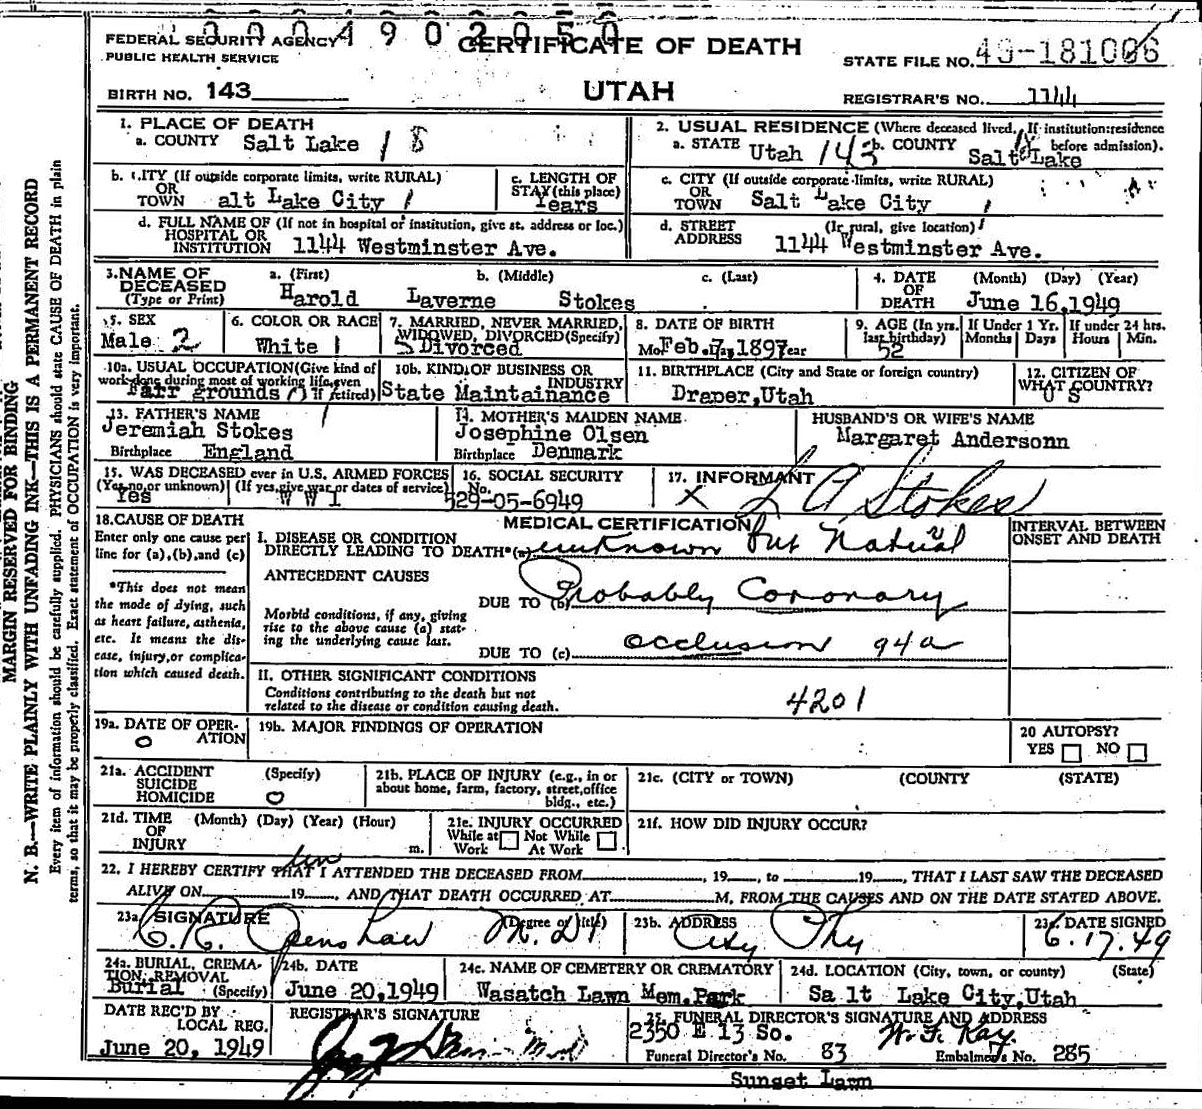 0 0 0 4 9 0 2 0 5 0
FEDERAL SECURITY AGENCY
PUBLIC HEALTH SERVICE
CERTIFICATE OF DEATH
STATE FILE NO. 49-181006
BIRTH NO. 143
UTAH
REGISTRAR'S NO. 1144
1. PLACE OF DEATH
a. COUNTY Salt Lake 18
2. USUAL RESIDENCE (Where deceased lived, If institution:residence before admission).
a. STATE Utah 143 b. COUNTY Salt Lake
b. CITY (If outside corporate limits, write RURAL)
OR
TOWN alt Lake City 1
c. LENGTH OF
STAY (this place)
Years
c. CITY (If outside corporate limits, write RURAL)
OR
TOWN Salt Lake City 1
d. FULL NAME OF (If not in hospital or institution, give st. address or loc.)
HOSPITAL OR
INSTITUTION 1144 Westminster Ave.
d. STREET (If rural, give location)
ADDRESS 1144 Westminster Ave.
3. NAME OF
DECEASED
(Type or Print)
a. (First) b. (Middle) c. (Last)
Harold Laverne Stokes
4. DATE (Month) (Day) (Year)
OF
DEATH June 16,1949
5. SEX
Male 2
6. COLOR OR RACE
White 1
7. MARRIED, NEVER MARRIED,
WIDOWED, DIVORCED (Specify)
5 Divorced
8. DATE OF BIRTH
Feb. 7, 1897
9. AGE (In yrs.
last birthday)
52
If Under 1 Yr.
Months Days
If under 24 hrs.
Hours Min.
10a. USUAL OCCUPATION (Give kind of
work done during most of working life, even
if retired)
Fair grounds
10b. KIND OF BUSINESS OR
INDUSTRY
State Maintainance
11. BIRTHPLACE (City and State or foreign country)
Draper,Utah
12. CITIZEN OF
WHAT COUNTRY?
U S
13. FATHER'S NAME
Jeremiah Stokes
Birthplace England
14. MOTHER'S MAIDEN NAME
Josephine Olsen
Birthplace Denmark
HUSBAND'S OR WIFE'S NAME
Margaret Andersonn
15. WAS DECEASED ever in U.S. ARMED FORCES
(Yes,no,or unknown) (If yes,give war or dates of service)
Yes W W I
16. SOCIAL SECURITY
No.
529-05-6949
17. INFORMANT
X L A Stokes
18. CAUSE OF DEATH
Enter only one cause per
line for (a),(b),and (c)
*This does not mean
the mode of dying, such
as heart failure, asthenia,
etc. It means the dis-
ease, injury, or complica-
tion which caused death.
MEDICAL CERTIFICATION
INTERVAL BETWEEN
ONSET AND DEATH
I. DISEASE OR CONDITION
DIRECTLY LEADING TO DEATH*(a) unknown but Natural
ANTECEDENT CAUSES
DUE TO (b) Probably Coronary
Morbid conditions, if any, giving
rise to the above cause (a) stat-
ing the underlying cause last.
DUE TO (c) occlusion 94a
II. OTHER SIGNIFICANT CONDITIONS
Conditions contributing to the death but not
related to the disease or condition causing death.
4201
19a. DATE OF OPER-
ATION
0
19b. MAJOR FINDINGS OF OPERATION
20 AUTOPSY?
YES NO
21a. ACCIDENT (Specify)
SUICIDE
HOMICIDE 0
21b. PLACE OF INJURY (e.g., in or
about home, farm, factory, street,office
bldg., etc.)
21c. (CITY or TOWN) (COUNTY) (STATE)
21d. TIME (Month) (Day) (Year) (Hour)
OF
INJURY m.
21e. INJURY OCCURRED
While at Not While
Work At Work
21f. HOW DID INJURY OCCUR?
22. I HEREBY CERTIFY THAT I ATTENDED THE DECEASED FROM , 19 , to 19 , THAT I LAST SAW THE DECEASED
ALIVE ON 19 , AND THAT DEATH OCCURRED AT M, FROM THE CAUSES AND ON THE DATE STATED ABOVE.
23a. SIGNATURE (Degree or title)
C. R. Openshaw M. D.
23b. ADDRESS
City Phy
23c. DATE SIGNED
6.17.49
24a. BURIAL, CREMA-
TION, REMOVAL
(Specify)
Burial
24b. DATE
June 20,1949
24c. NAME OF CEMETERY OR CREMATORY
Wasatch Lawn Mem. Park
24d. LOCATION (City, town, or county) (State)
Salt Lake City,Utah
DATE REC'D BY
LOCAL REG.
June 20, 1949
REGISTRAR'S SIGNATURE
25. FUNERAL DIRECTOR'S SIGNATURE AND ADDRESS
2350 E 13 So. W. F. Kay
Funeral Director's No. 83 Embalmer's No. 285
Sunset Lawn
MARGIN RESERVED FOR BINDING
N. B.—WRITE PLAINLY WITH UNFADING INK—THIS IS A PERMANENT RECORD
Every item of information should be carefully supplied. PHYSICIANS should state CAUSE OF DEATH in plain
terms, so that it may be properly classified. Exact statement of OCCUPATION is very important.